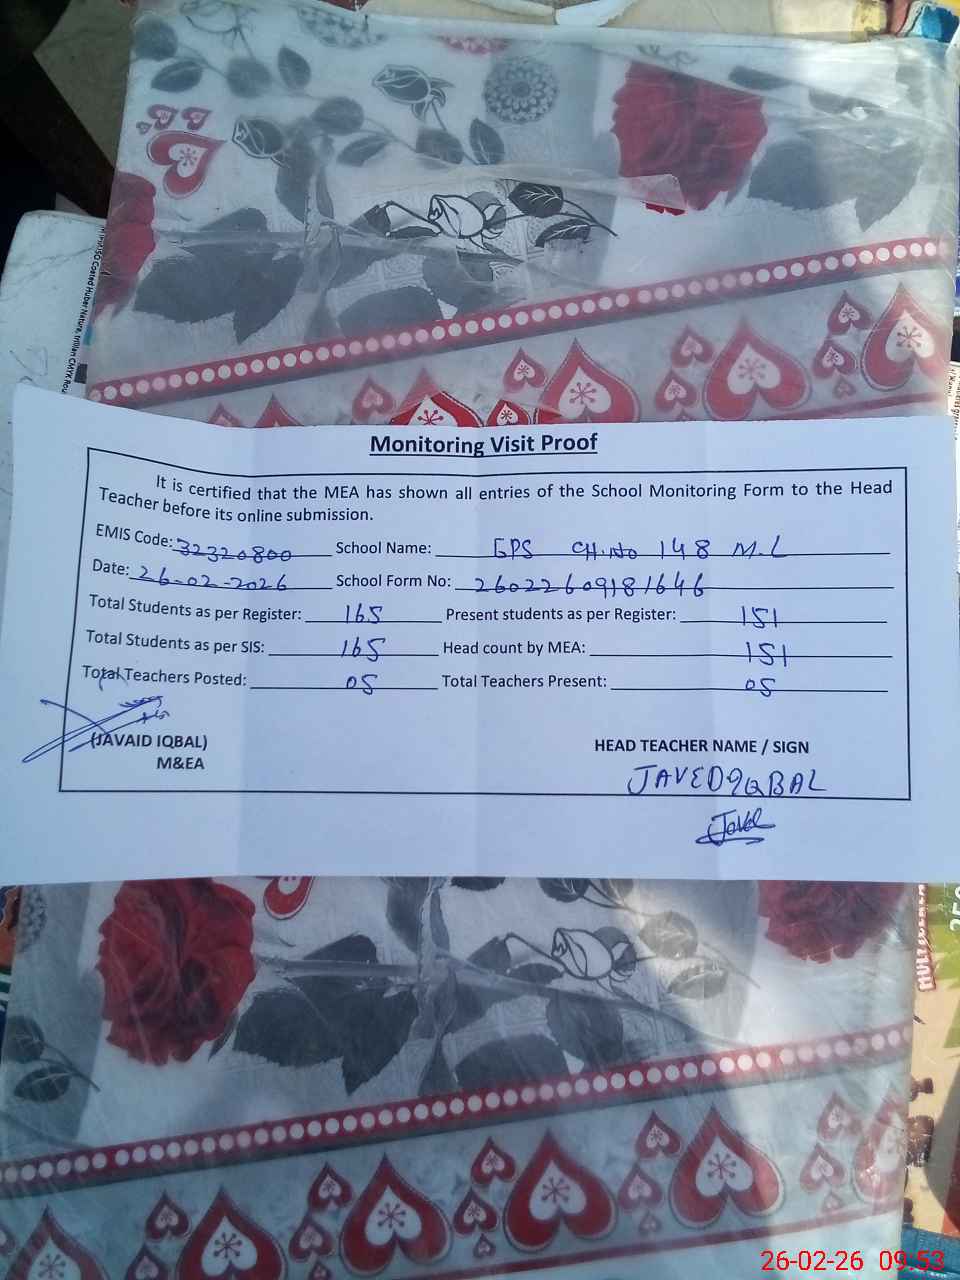 Monitoring Visit Proof
It is certified that the MEA has shown all entries of the School Monitoring Form to the Head
Teacher before its online submission.
EMIS Code: 32320800 School Name: GPS CH.No 148 M.L
Date: 26-02-2026 School Form No: 26022609181646
Total Students as per Register: 165 Present students as per Register: 151
Total Students as per SIS: 165 Head count by MEA: 151
Total Teachers Posted: 05 Total Teachers Present: 05
(JAVAID IQBAL) HEAD TEACHER NAME / SIGN
M&EA JAVED IQBAL
Javed
26-02-26 09:53